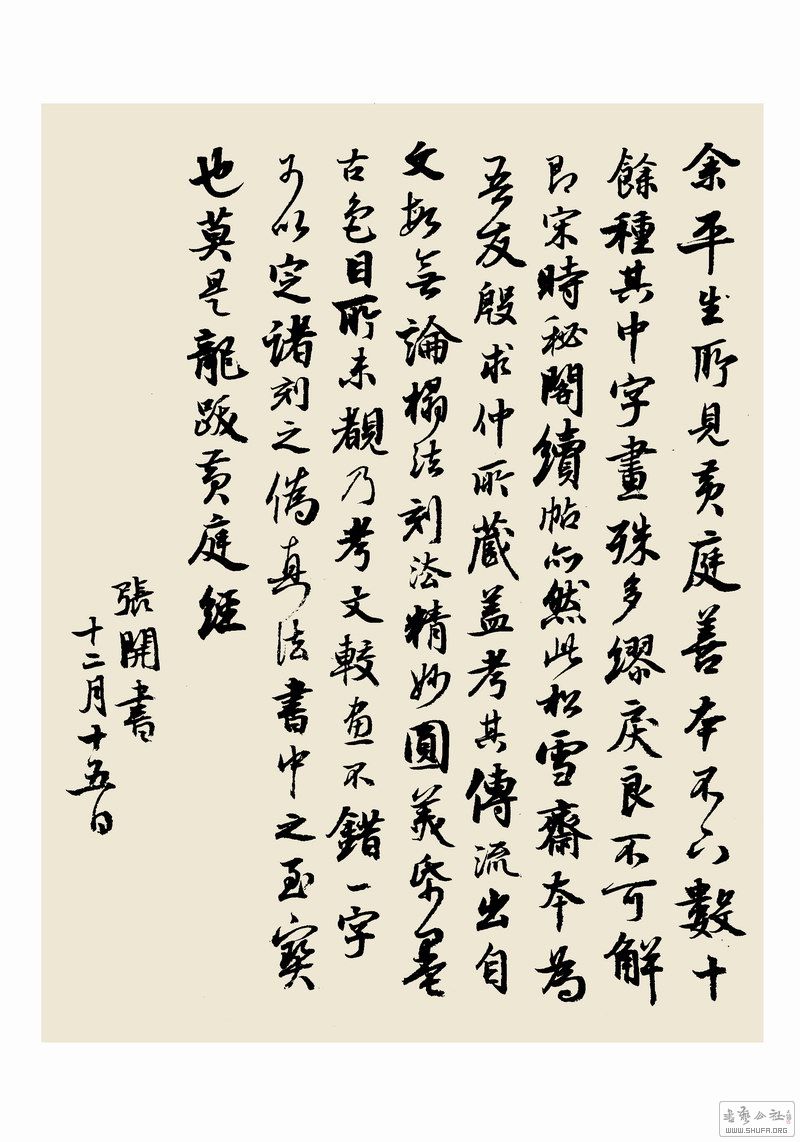 余平生所見黄庭善本不下數十
餘種其中字畫殊多繆戾良不可解
即宋時秘閣續帖亦然此松雪齋本為
吾友殷求仲所藏蓋考其傳流出自
文敏無論榻法刻法精妙圓美紙墨
古色目所未覩乃考文較畫不錯一字
可以定諸刻之偽真法書中之至寶
也莫是龍跋黄庭經
張開書
十二月十五日
書藝公社
WWW.SHUFA.ORG